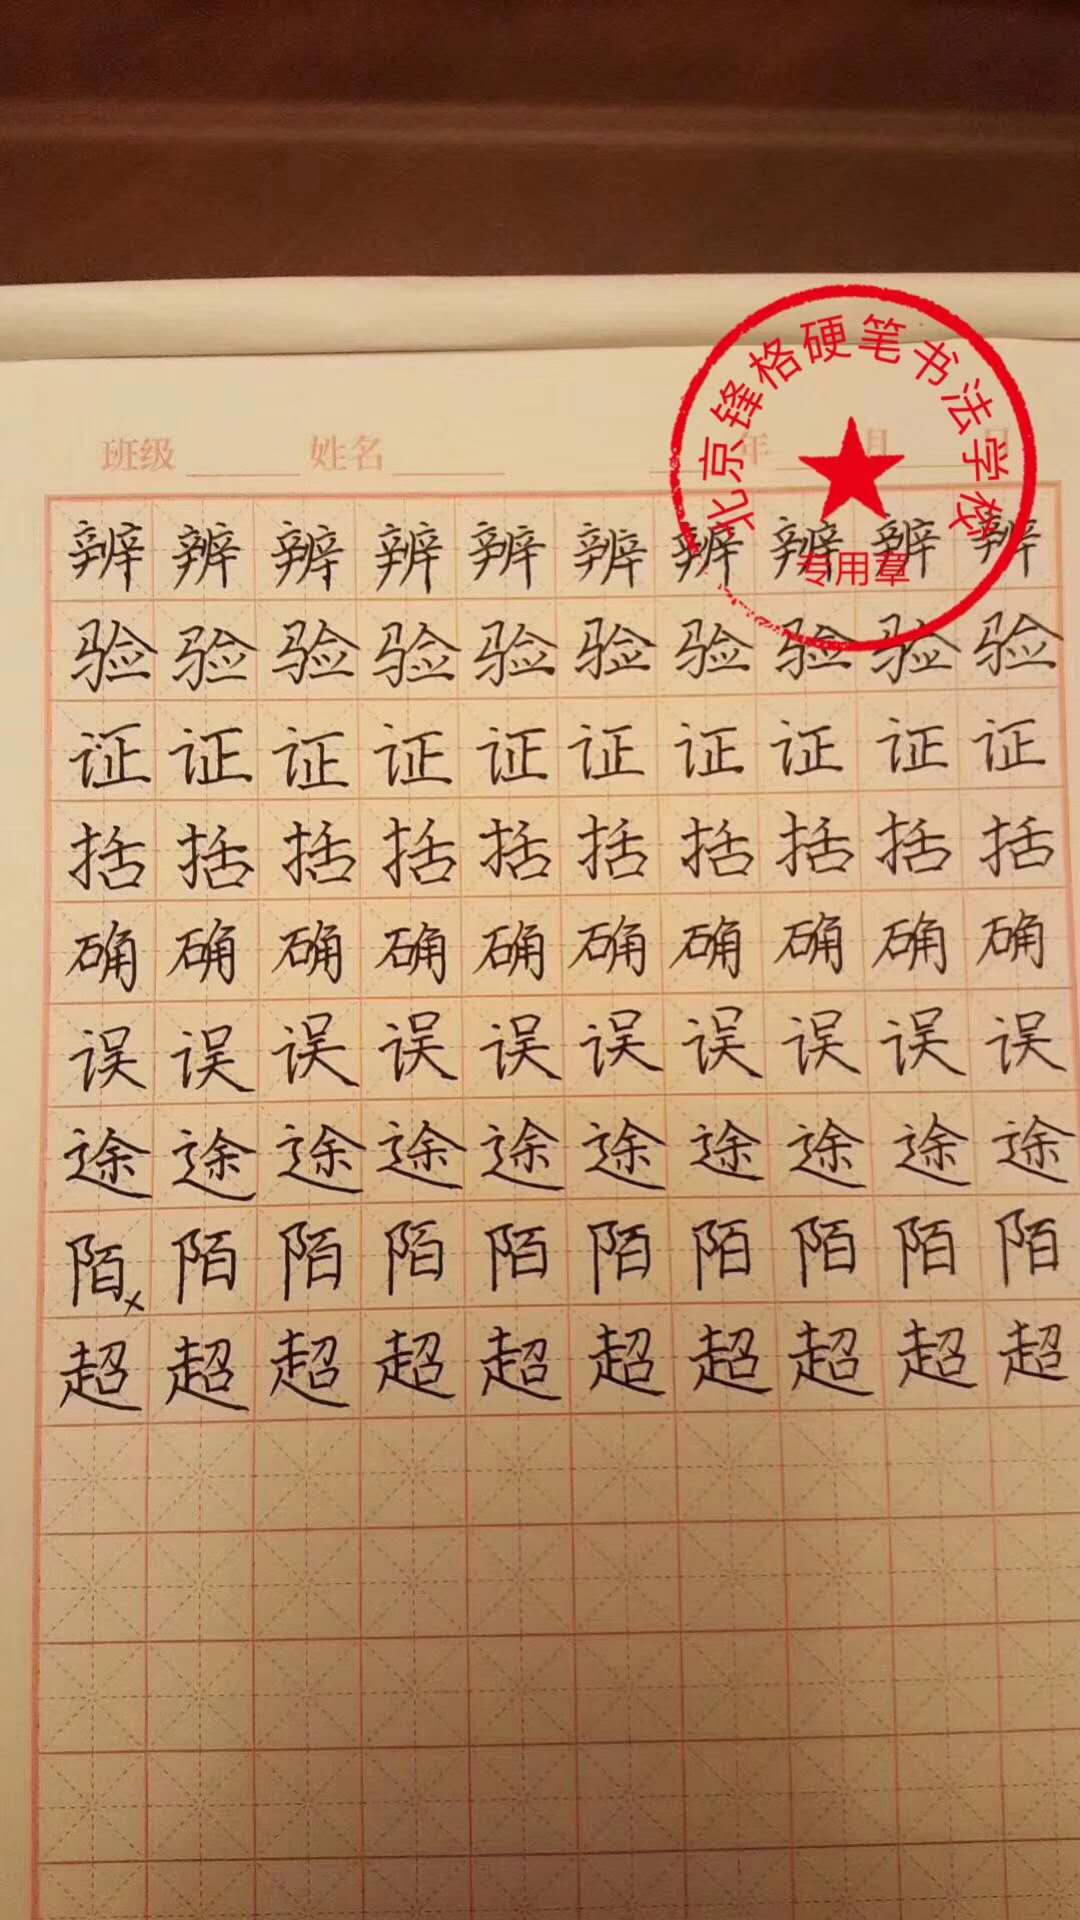 北京锋格硬笔书法学校
专用章
班级 姓名 年 月 日
辨 辨 辨 辨 辨 辨 辨 辨 辨 辨
验 验 验 验 验 验 验 验 验 验
证 证 证 证 证 证 证 证 证 证
括 括 括 括 括 括 括 括 括 括
确 确 确 确 确 确 确 确 确 确
误 误 误 误 误 误 误 误 误 误
途 途 途 途 途 途 途 途 途 途
陌 陌 陌 陌 陌 陌 陌 陌 陌 陌
超 超 超 超 超 超 超 超 超 超